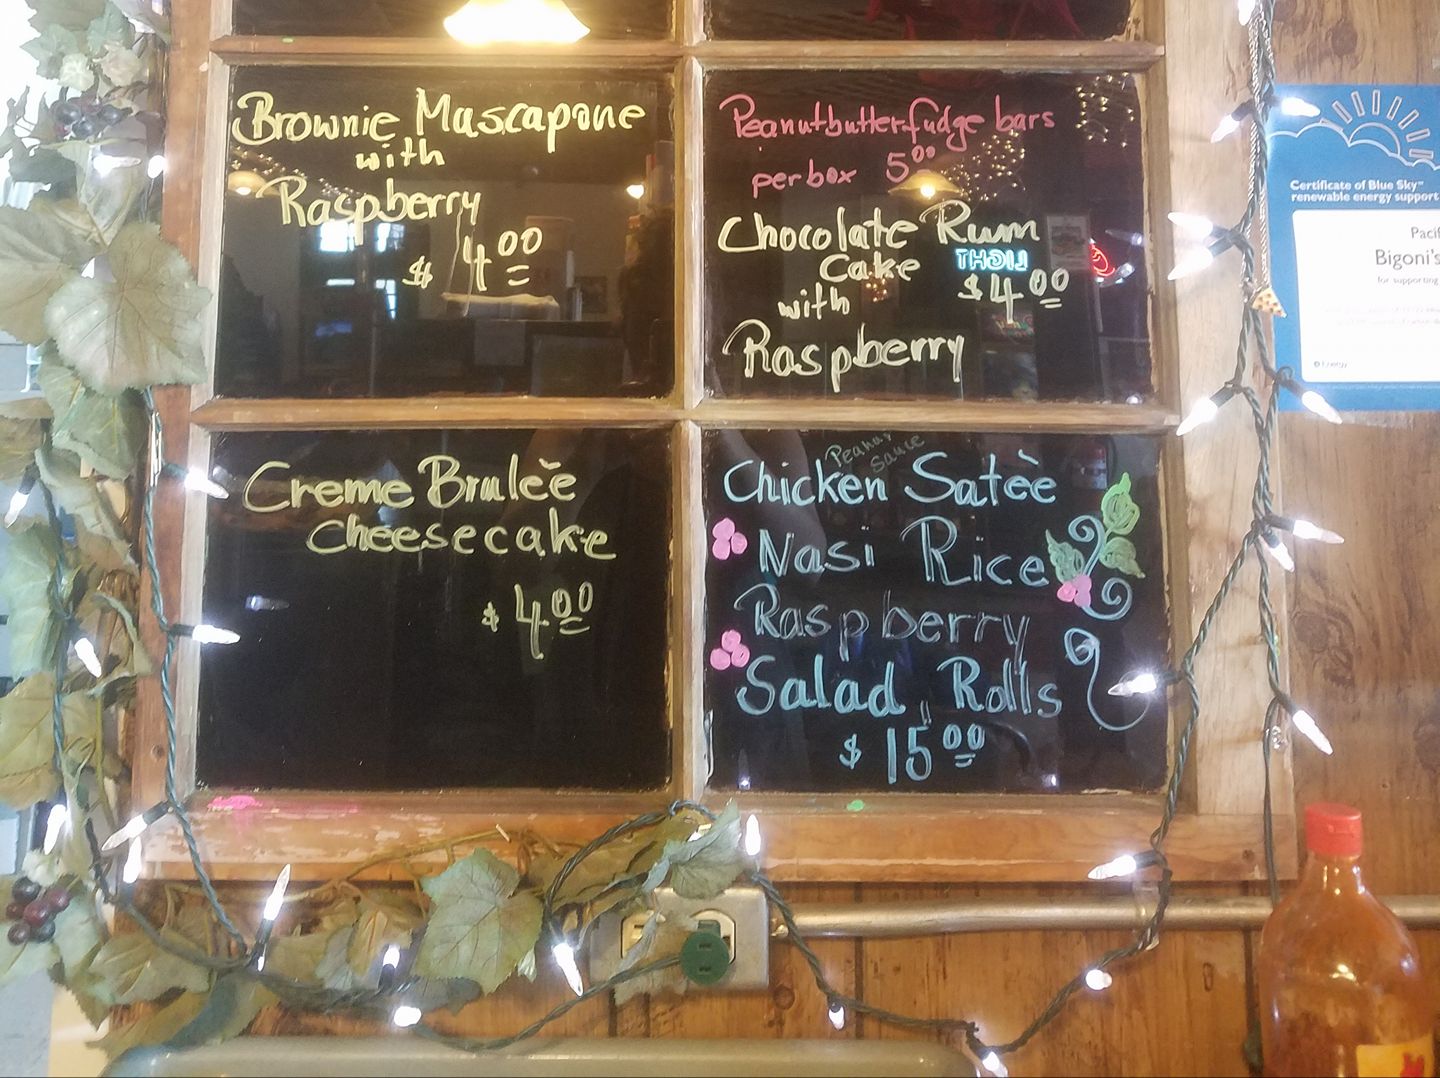 Brownie Mascapone
with
Raspberry
$ 4.00
Peanutbutterfudge bars
per box 5.00
Chocolate Rum
Cake
$4.00
with
Raspberry
LIGHT
Creme Brulèe
cheesecake
$ 4.00
Peanut
Sauce
Chicken Satèe
Nasi Rice
Raspberry
Salad, Rolls
$ 15.00
Certificate of Blue Sky™
renewable energy support
Pacif
Bigoni's
for supporting
Energy